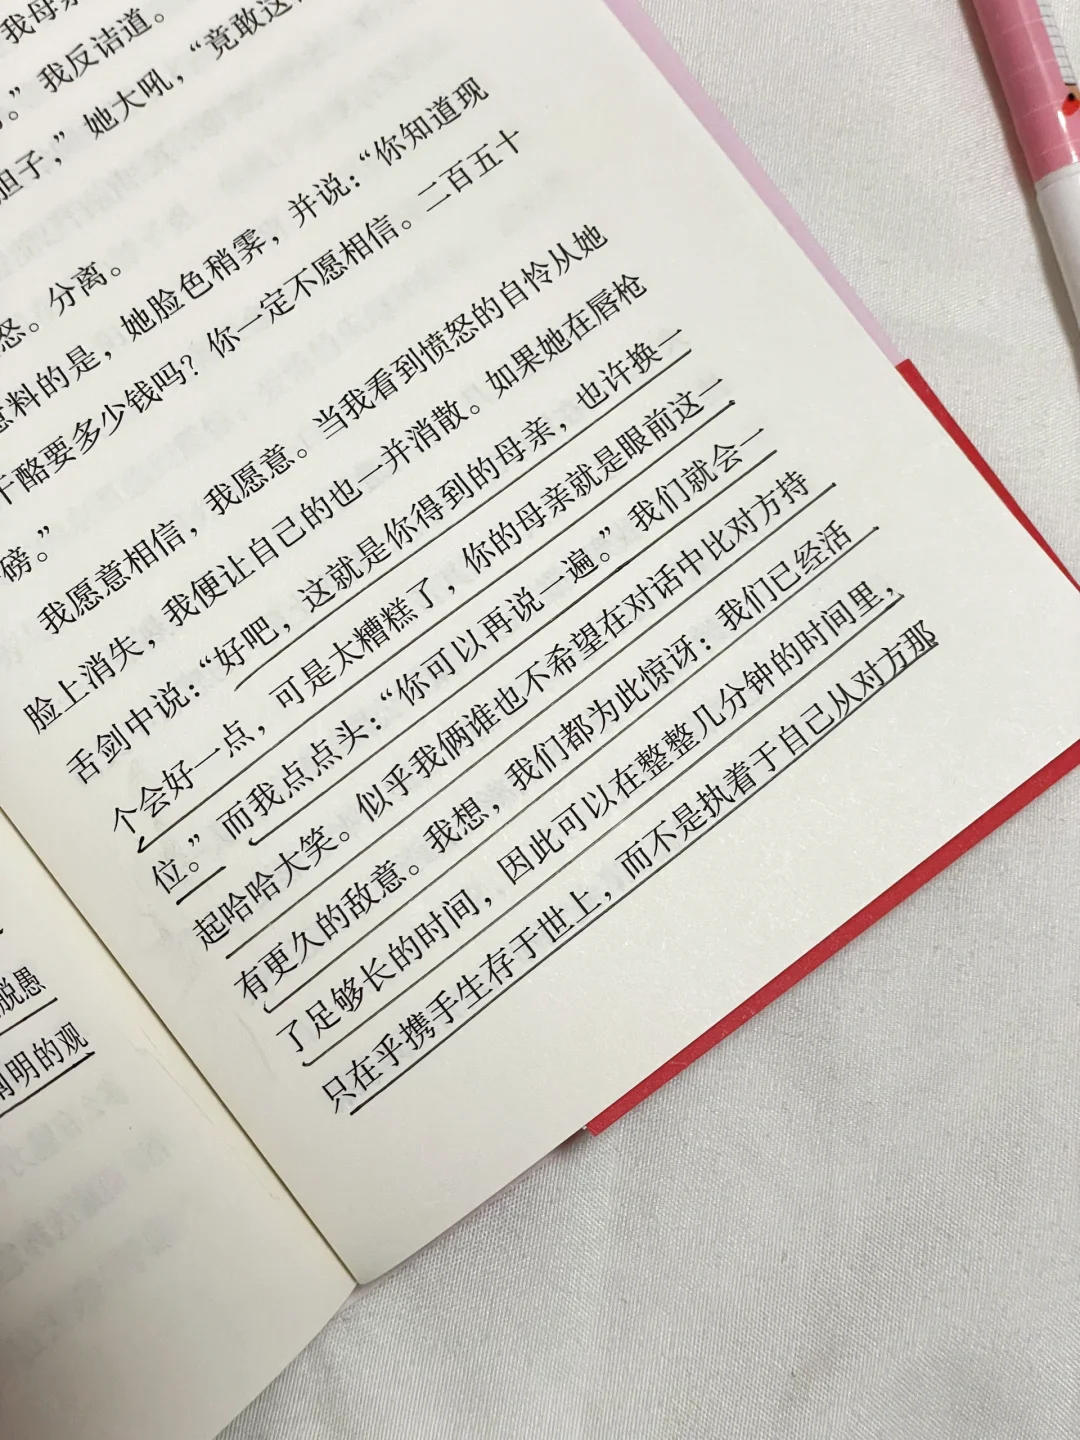 我母亲
。”我反诘道。
胆子，”她大吼，“竟敢这
怒。分离。
料的是，她脸色稍霁，并说：“你知道现
干酪要多少钱吗？你一定不愿相信。二百五十
磅。”
我愿意相信，我愿意。当我看到愤怒的自怜从她
脸上消失，我便让自己的也一并消散。如果她在唇枪
舌剑中说：“好吧，这就是你得到的母亲，也许换一
个会好一点，可是太糟糕了，你的母亲就是眼前这一
位。”而我点点头：“你可以再说一遍。”我们就会一
起哈哈大笑。似乎我俩谁也不希望在对话中比对方持
有更久的敌意。我想，我们都为此惊讶：我们已经活
了足够长的时间，因此可以在整整几分钟的时间里，
只在乎携手生存于世上，而不是执着于自己从对方那
脱愚
明的观